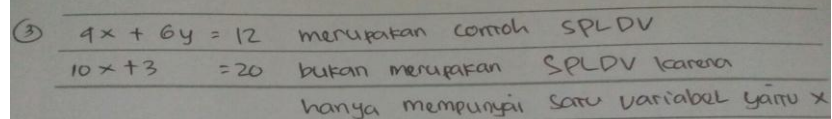 ③ 4x + 6y = 12 merupakan contoh SPLDV
10x + 3 = 20 bukan merupakan SPLDV karena
hanya mempunyai satu variabel yaitu x